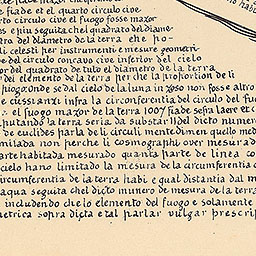 te fia de et el quarto circulo cive
rto circulo cive et fuogo fosse mazor
es e piu seguita chel quadrato del diame
dro del diametro de la terra che po
li celesti per instrumenti e mesure geometri
de del circulo concavo cive inferior del cielo
or del quadrato de tuto el diametro de la terra
del elemento de la terra per che la proportion de li
fuogo onde se dal cielo de la luna in zoso non fosse altro
infra la circonferentia del circulo del fu
el fuogo mazor de la terra 1007 fiade sefia laere et
putando la terra seria da substantia del dicto numero
de euclides parla de li circuli mente dimen quello me
milada non perche li cosmographi over mesurado
arte habitada mesurado quanta parte de linea co
cielo hano limitado la mesura de la circumferentia d
ircumferentia de la terra habi e qual distantia dal m
aqua seguita chel dicto munero de mesura de la terra
includendo cho lo elemento del fuego e solamente
metrica sopra dicta e tal parlar vulgar prescrip